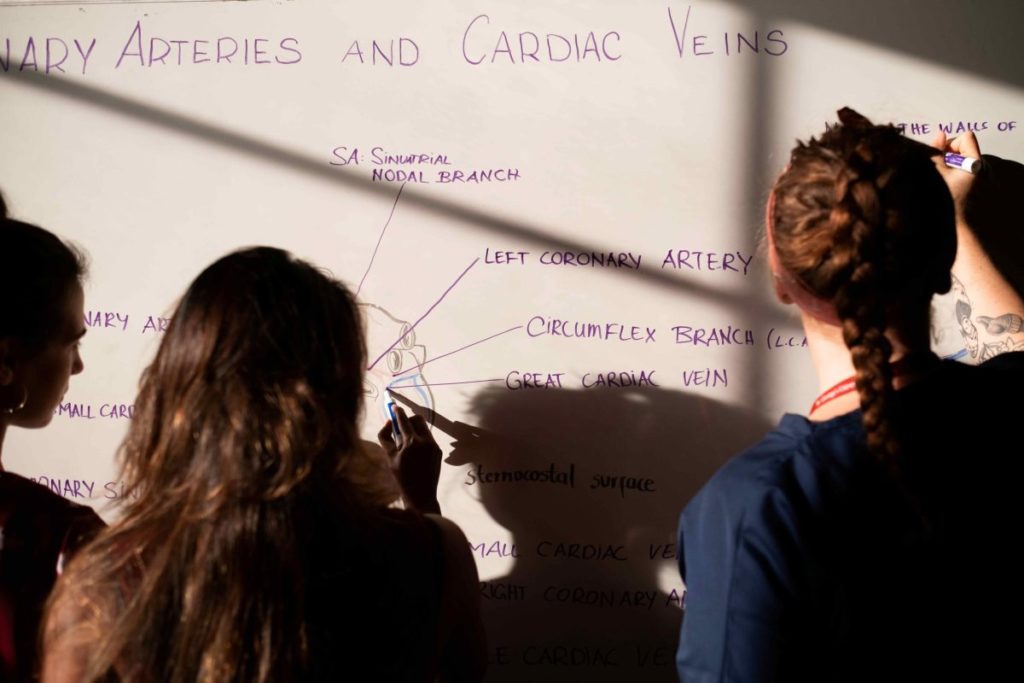 NARY ARTERIES AND CARDIAC VEINS
THE WALLS OF
SA: SINUATRIAL
NODAL BRANCH
LEFT CORONARY ARTERY
NARY AR
CIRCUMFLEX BRANCH (L.C.A
GREAT CARDIAC VEIN
SMALL CARD
sternocostal surface
ONARY SIN
SMALL CARDIAC VE
RIGHT CORONARY A
LE CARDIAC VE